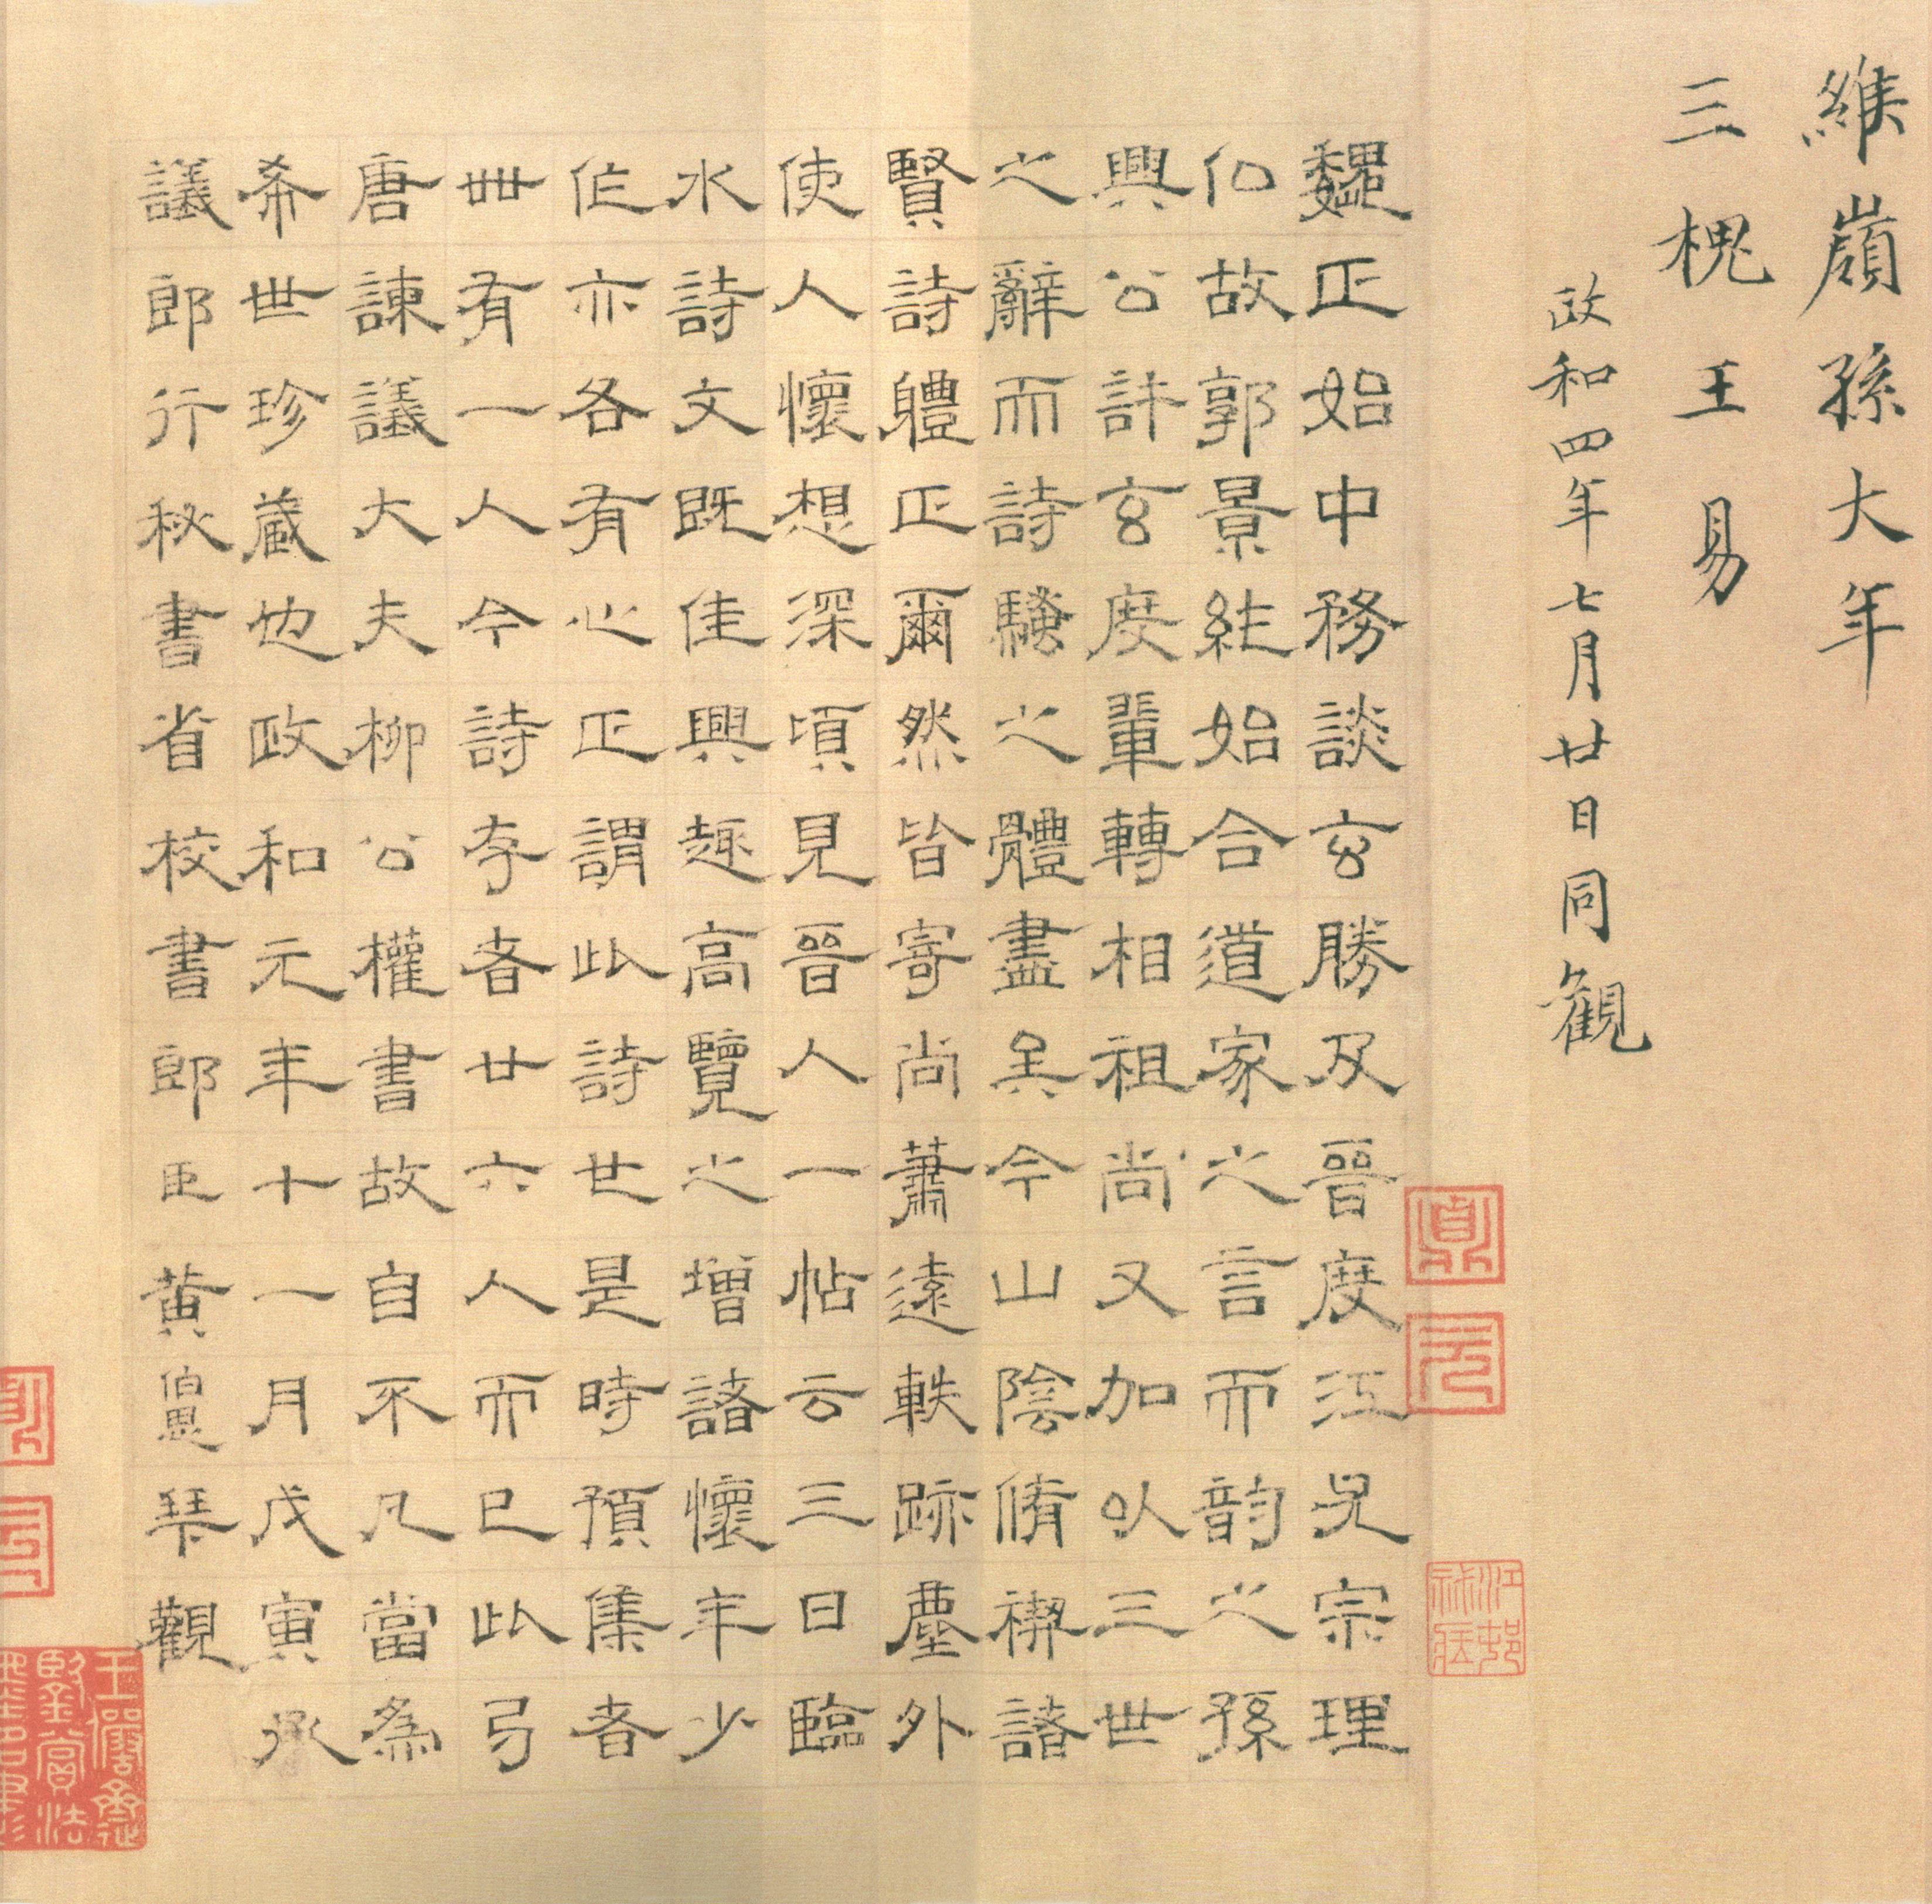 維嶺孫大年
三槐王易
政和四年七月廿日同觀
魏正始中務談玄勝及晉度江尤宗理
仏故郭景純始合道家之言而韵之孫
興公許玄度輩轉相祖尚又加以三世
之辭而詩騷之體盡矣今山陰脩禊諸
賢詩軆正爾然皆寄尚蕭遠軼跡塵外
使人懷想深頃見晉人一帖云三日臨
水詩文既佳興趣高覽之增諸懷年少
作亦各有心正謂此詩也是時預集者
卌有一人今詩存者廿六人而已此弓
唐諫議大夫柳公權書故自不凡當為
希世珍藏也政和元年十一月戊寅承
議郎行秘書省校書郎臣黃伯思琴觀
貞
元
江邨
秘藏